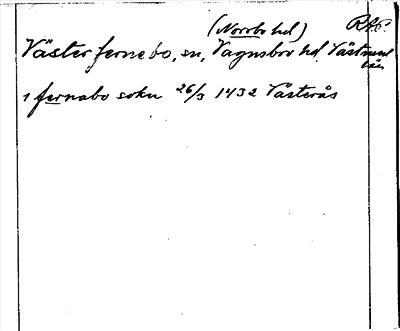 (Norrbo hd) RAP.
Västerfernebo, sn, Vagnsbro hd, Västmanl
län
i fernabo sokn 26/3 1432 Västerås